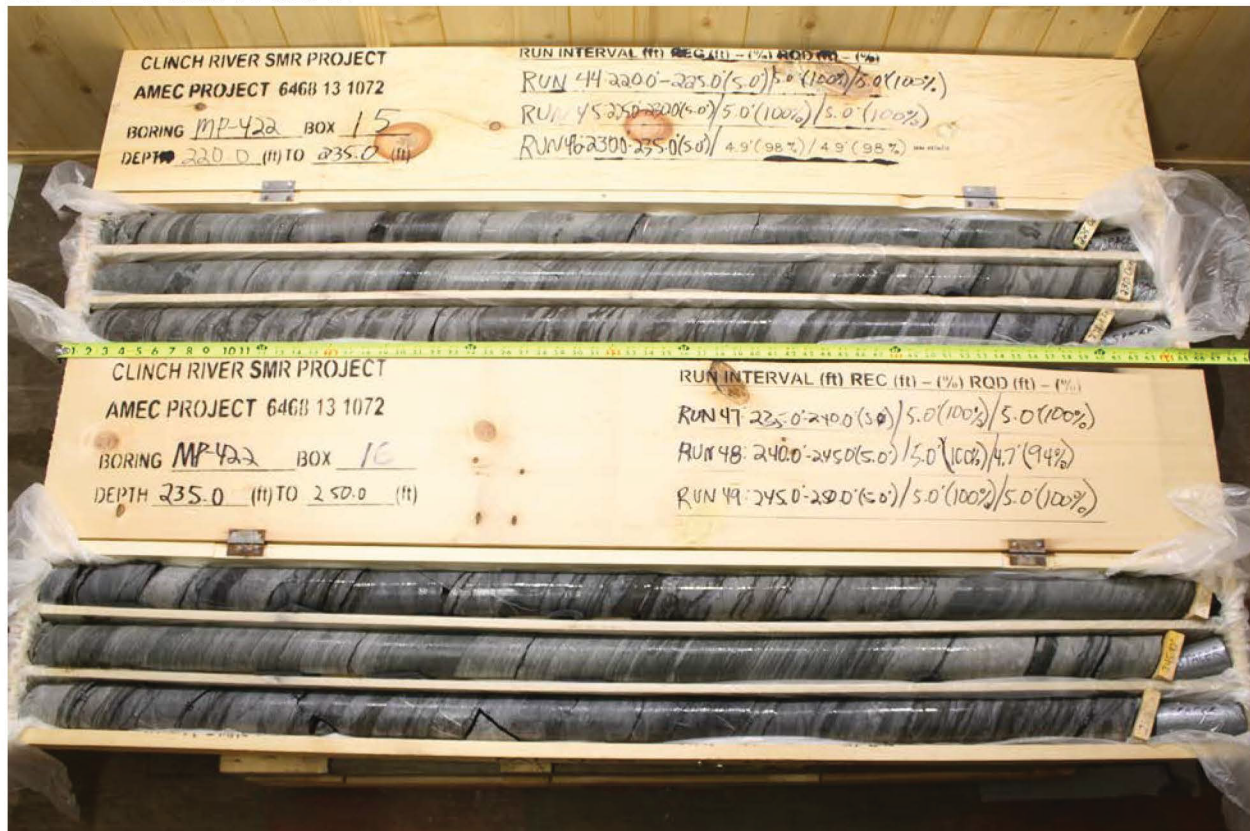 CLINCH RIVER SMR PROJECT
AMEC PROJECT 6468 13 1072
BORING MP-422 BOX 15
DEPTH 220.0 (ft) TO 235.0 (ft)
RUN INTERVAL (ft) REC (ft) – (%) RQD (ft) – (%)
RUN 44: 220.0'-225.0'(5.0')/5.0'(100%)/5.0'(100%)
RUN 45: 225.0'-230.0'(5.0')/5.0'(100%)/5.0'(100%)
RUN 46: 230.0'-235.0'(5.0')/ 4.9' (98%) / 4.9' (98%)
230.0
1 2 3 4 5 6 7 8 9 10 11
CLINCH RIVER SMR PROJECT
AMEC PROJECT 6468 13 1072
BORING MP-422 BOX 16
DEPTH 235.0 (ft) TO 250.0 (ft)
RUN INTERVAL (ft) REC (ft) – (%) RQD (ft) – (%)
RUN 47: 235.0'-240.0'(5.0')/5.0'(100%)/5.0'(100%)
RUN 48: 240.0'-245.0(5.0')/5.0'(100%)/4.7'(94%)
RUN 49: 245.0'-250.0'(5.0')/5.0'(100%)/5.0'(100%)
245.0